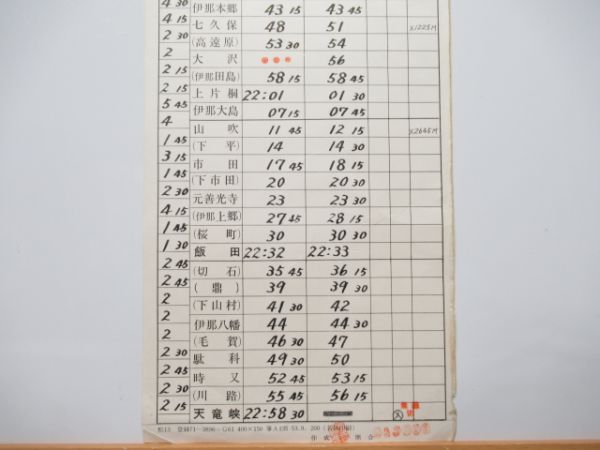 4 30 伊那本郷 43 15 43 45
4 15 七久保 48 51 ×1225M
2 30 (高遠原) 53 30 54
2 大沢 56
2 15 (伊那田島) 58 15 58 45
2 15 上片桐 22:01 01 30
5 45 伊那大島 07 15 07 45
4 山吹 11 45 12 15 ×2645M
1 45 (下平) 14 14 30
3 15 市田 17 45 18 15
1 45 (下市田) 20 20 30
2 30 元善光寺 23 23 30
4 15 (伊那上郷) 27 45 28 15
1 45 (桜町) 30 30 30
1 30 飯田 22:32 22:33
2 45 (切石) 35 45 36 15
2 45 (鼎) 39 39 30
2 (下山村) 41 30 42
2 伊那八幡 44 44 30
2 (毛賀) 46 30 47
2 30 駄科 49 30 50
2 45 時又 52 45 53 15
2 30 (川路) 55 45 56 15
2 15 天竜峡 22:58 30
入
400×150